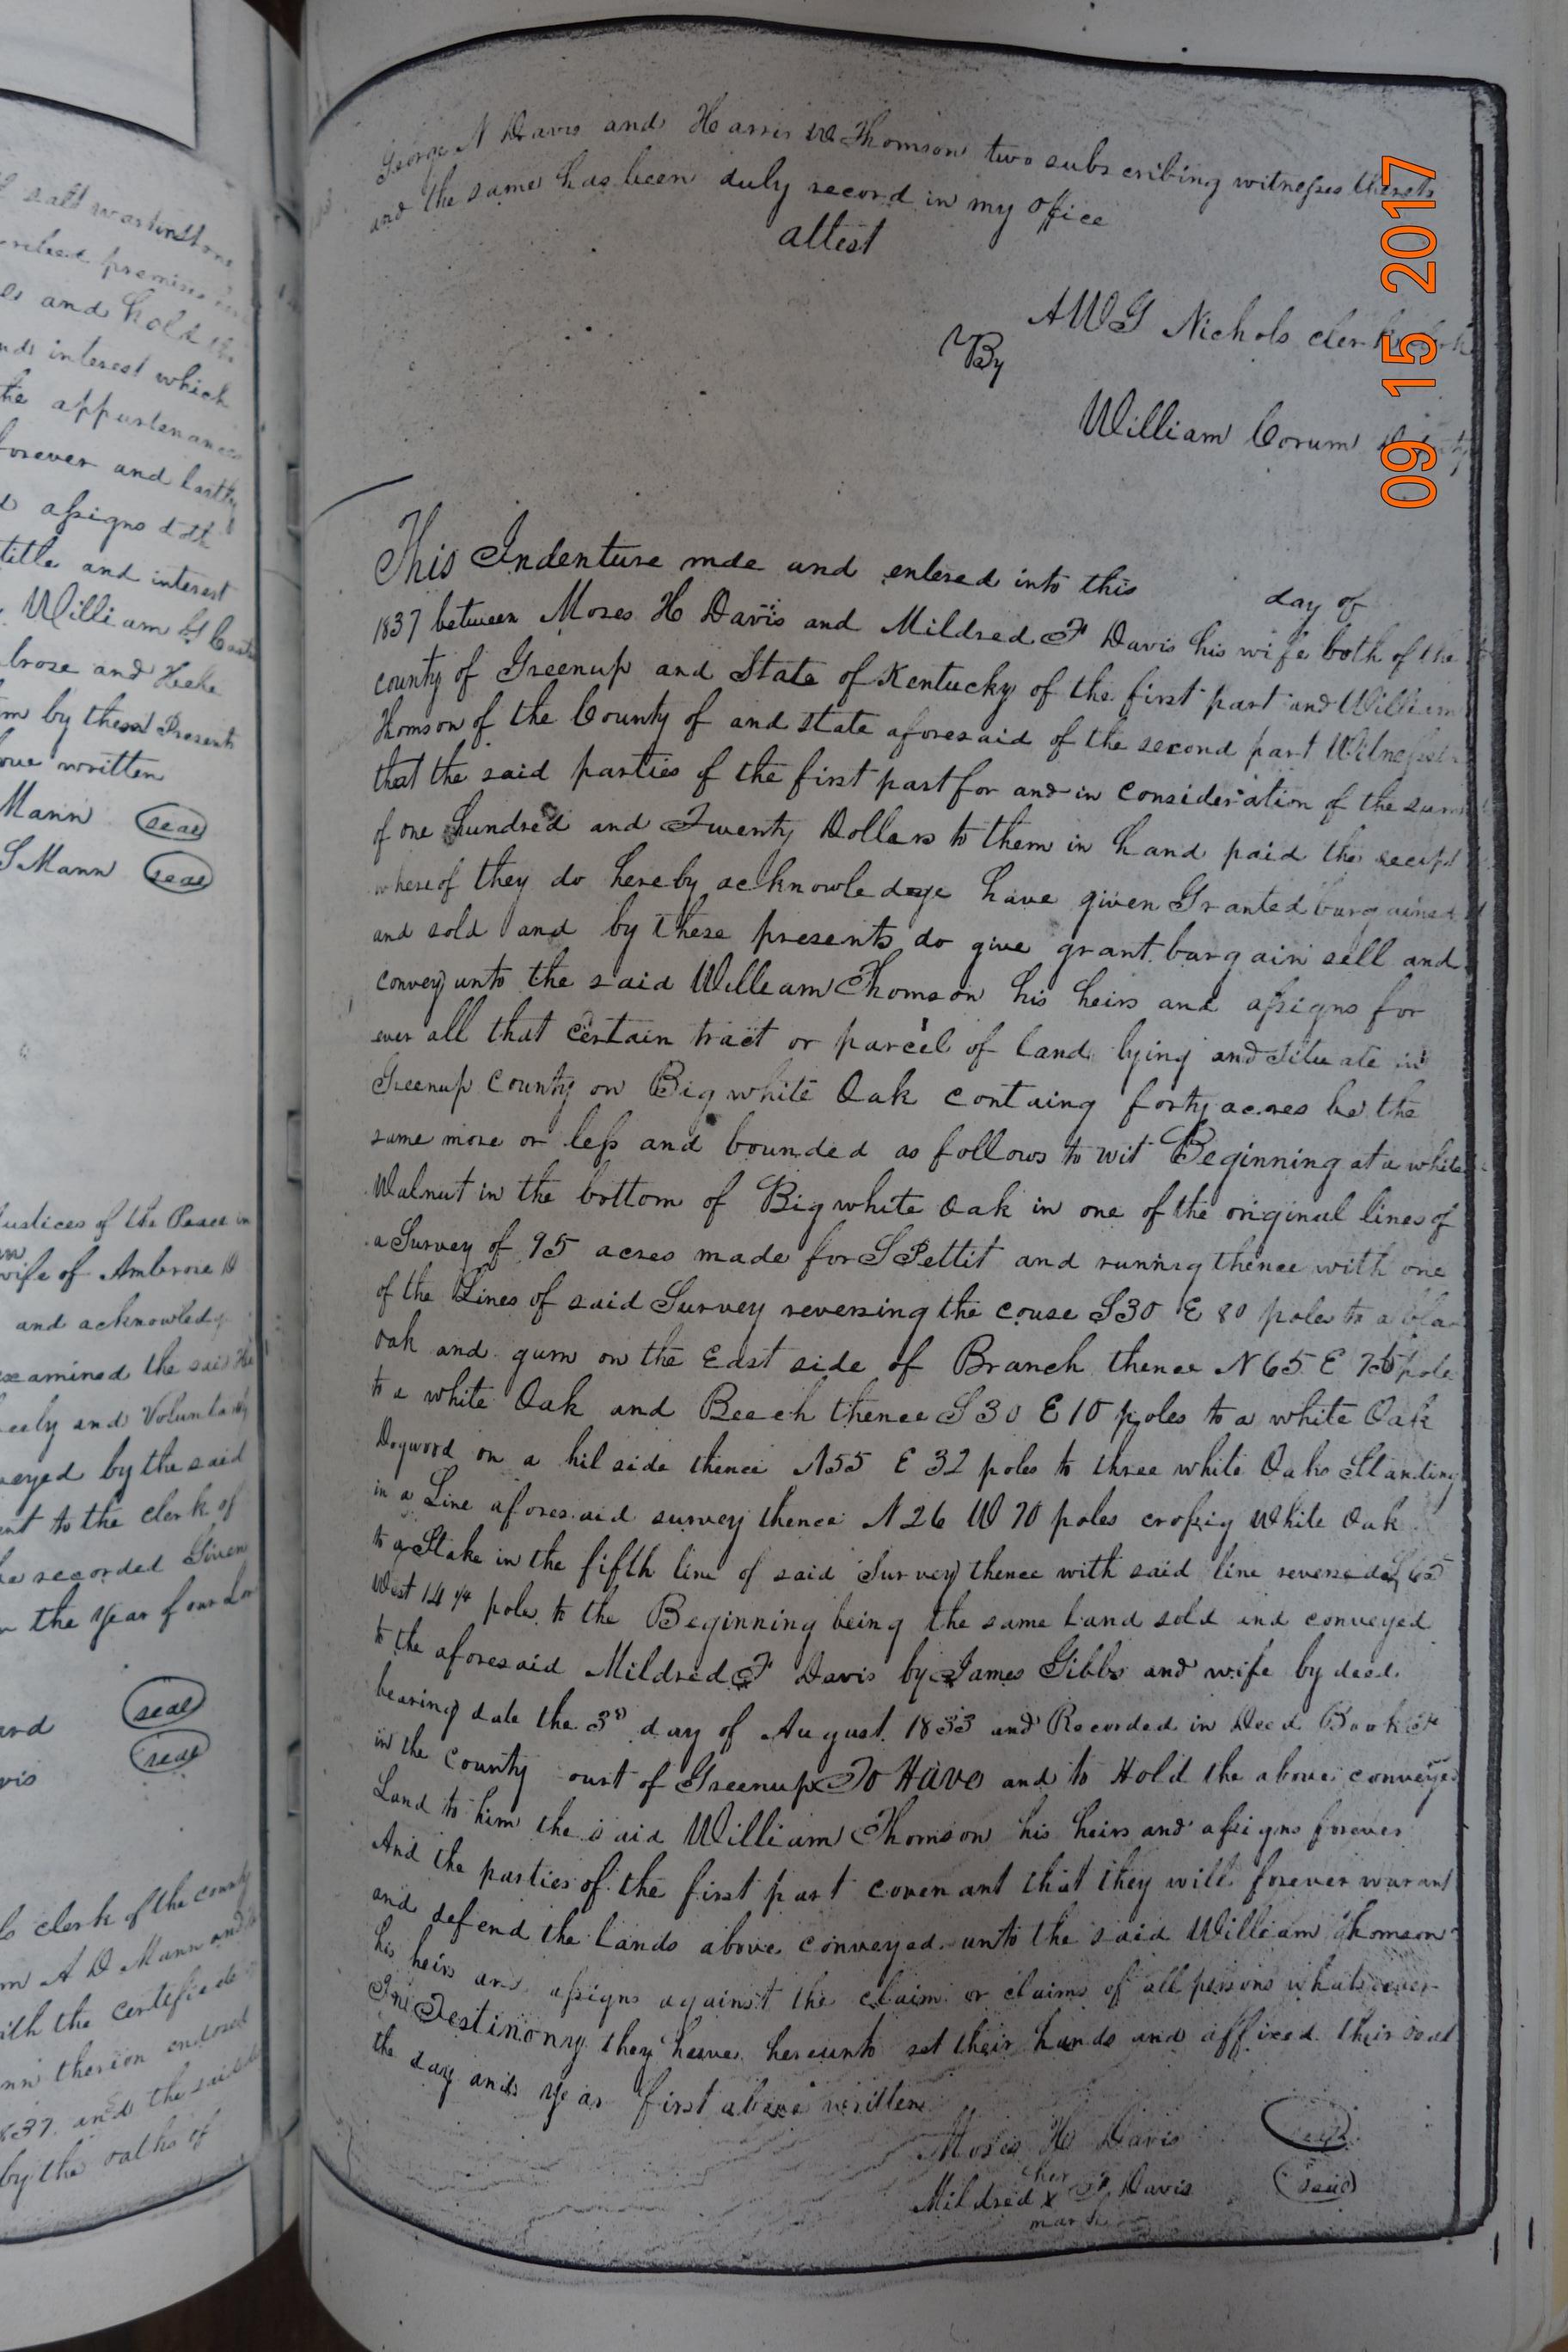 l salt
premises
es and hold the
nds interest which
the appurtenances
forever and lastly
d assigns doth
title and interest
William
brose and
m by these Presents
ove written
Mann seal
S Mann seal
Justices of the Peace in
wife of Ambrose D
and acknowledg
examined the said
eely and Voluntarily
veyed by the said
ent to the clerk of
be recorded Given
n the year of our Lor
seal
seal
vis
clerk of the county
m A D Mann and
ith the certificate
nn thereon endorsed
1837 and the said
by the oaths of
George N Davis and Harris W Thomson two subscribing witnesses thereto
and the same has been duly record in my office
attest
A W G Nichols clerk
By
William Corum
09 15 2017
This Indenture mde and entered into this day of
1837 between Moses H Davis and Mildred F Davis his wife both of the
county of Greenup and State of Kentucky of the first part and William
Thomson of the County of and state aforesaid of the second part Witnesseth
that the said parties of the first part for and in consideration of the sum
of one hundred and Twenty Dollars to them in hand paid the receipt
whereof they do hereby acknowledge have given Granted bargained
and sold and by these presents do give grant bargain sell and
convey unto the said William Thomson his heirs and assigns for
ever all that certain tract or parcel of land lying and Situate in
Greenup County on Big white Oak containg forty acres be the
same more or less and bounded as follows to wit Beginning at a white
Walnut in the bottom of Big white Oak in one of the original lines of
a Survey of 95 acres made for S Pettit and runnig thence with one
of the Lines of said Survey reversing the couse S30 E 80 poles to a bla
oak and gum on the East side of Branch thence N 65 E pole
to a white Oak and Beech thence S 30 E 10 poles to a white Oak
Dogwood on a hil side thence N55 E 32 poles to three white Oaks Standing
in a Line aforesaid survey thence N 26 W 70 poles crossig White Oak
to a Stake in the fifth line of said Survey thence with said line reversed S 65
West 14 pole to the Beginning being the same Land sold and conveyed
to the aforesaid Mildred F Davis by James Gibbs and wife by deed
bearing date the 3d day of August 1833 and Recorded in Deed Book
in the county ourt of Greenup To Have and to Hold the above conveyed
Land to him the said William Thomson his heirs and assigns forever
And the parties of the first part covenant that they will forever warant
and defend the Lands above conveyed unto the said William Thomson
his heirs and assigns against the claim or claims of all persons whatsoever
In Testimony they have hereunto set their hands and affixed their seal
the day and year first above written
Moses H Davis seal
her
Mildred x F Davis seal
mark